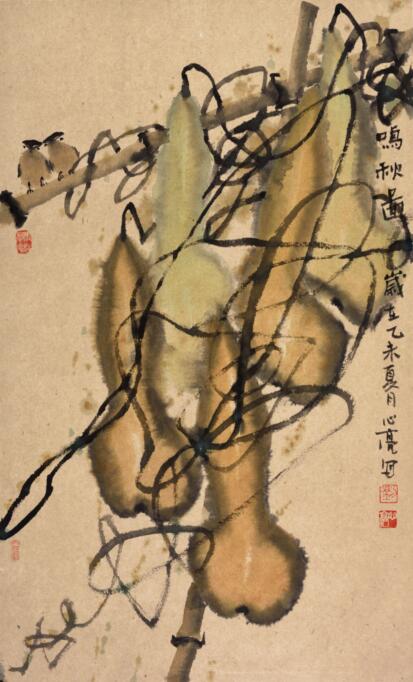 鳴秋圖 歲在乙未夏月心亮寫